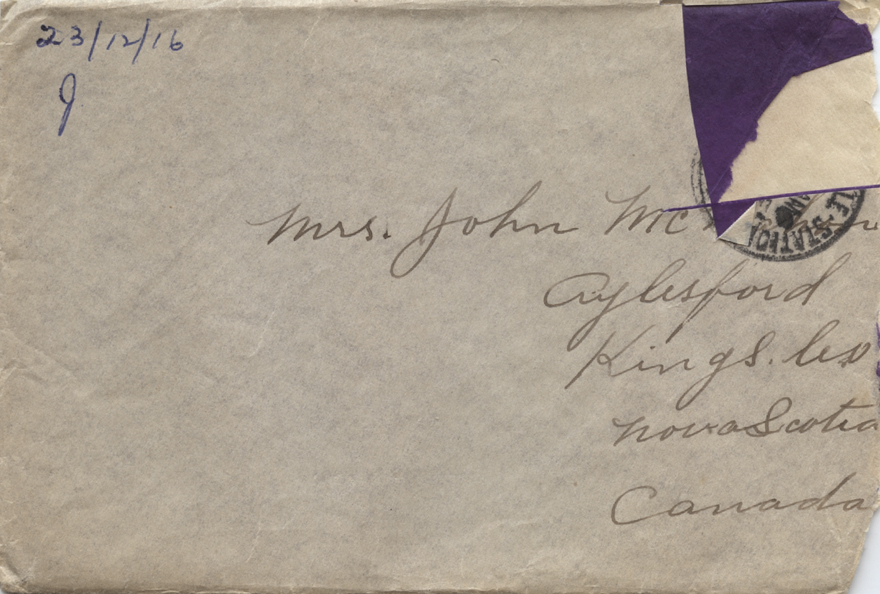 23/12/16
J
Mrs. John Mc
Aylesford
Kings. Co
Nova Scotia
Canada